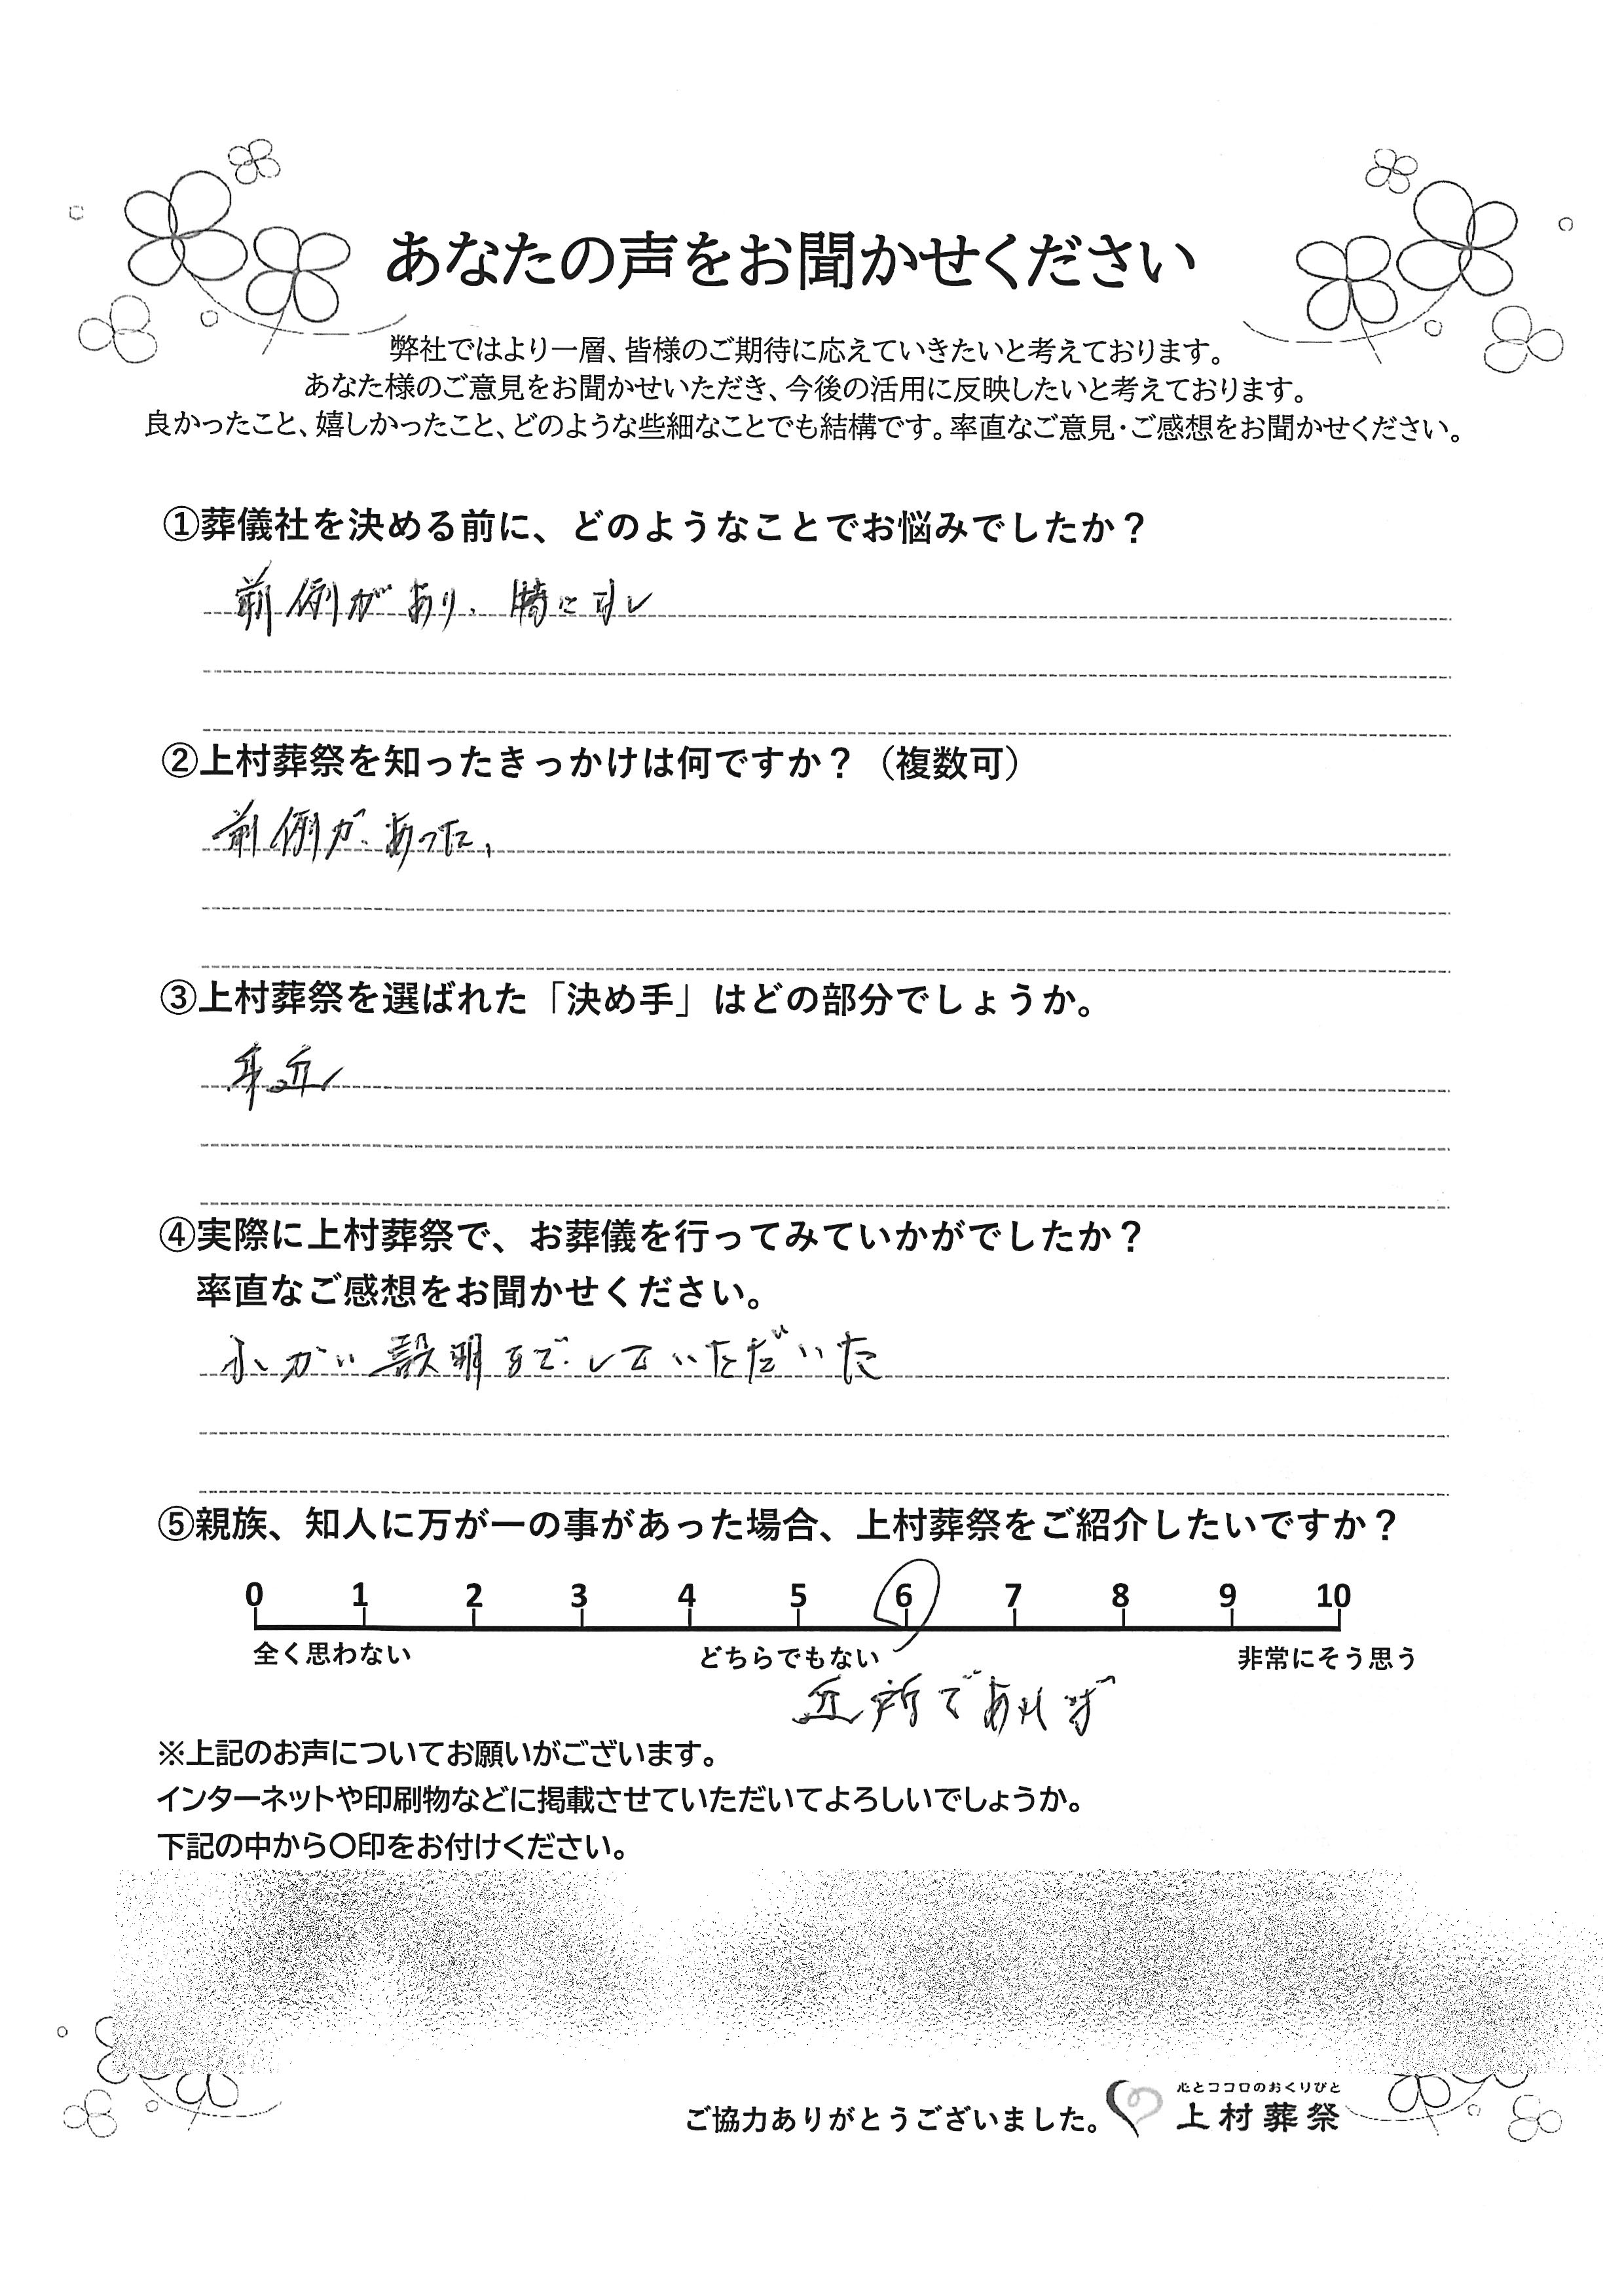 あなたの声をお聞かせください
弊社ではより一層、皆様のご期待に応えていきたいと考えております。
あなた様のご意見をお聞かせいただき、今後の活用に反映したいと考えております。
良かったこと、嬉しかったこと、どのような些細なことでも結構です。率直なご意見・ご感想をお聞かせください。
①葬儀社を決める前に、どのようなことでお悩みでしたか？
前例があり、特になし
②上村葬祭を知ったきっかけは何ですか？（複数可）
前例があった、
③上村葬祭を選ばれた「決め手」はどの部分でしょうか。
身近
④実際に上村葬祭で、お葬儀を行ってみていかがでしたか？
率直なご感想をお聞かせください。
説明までしていただいた
⑤親族、知人に万が一の事があった場合、上村葬祭をご紹介したいですか？
0 1 2 3 4 5 6 7 8 9 10
全く思わない どちらでもない 非常にそう思う
近所であれば
※上記のお声についてお願いがございます。
インターネットや印刷物などに掲載させていただいてよろしいでしょうか。
下記の中から〇印をお付けください。
心とココロのおくりびと
ご協力ありがとうございました。 上村葬祭